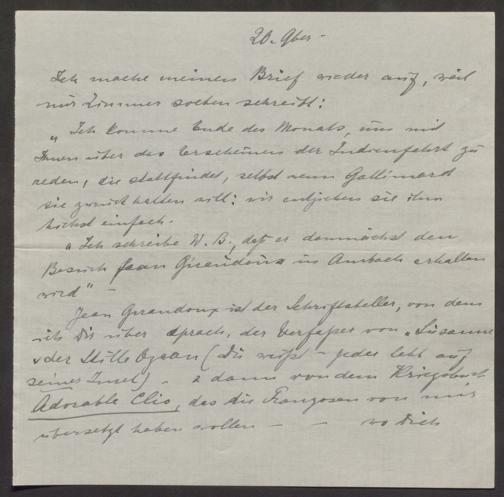 20. 9ber -
Ich mache meinen Brief wieder auf, weil
mir Zimmer soeben schreibt:
„Ich komme Ende des Monats, um mit
Ihnen über das Erscheinen der Indienfahrt zu
reden, die stattfindet, selbst wenn Gallimard
sie zurückhalten will: wir entziehen sie ihm
höchst einfach.
„Ich schreibe W. B., daß er demnächst den
Besuch Jean Giraudoux in Ambach erhalten
wird" -
Jean Giraudoux ist der Schriftsteller, von dem
ich Dir über sprach, der Verfasser von „Susanne
u der Stille Ozean (Du weißt - jeder lebt auf
seiner Insel) - & dann von dem Kriegsbuch
Adorable Clio, das die Franzosen von mir
übersetzt haben wollen - - wo Dich